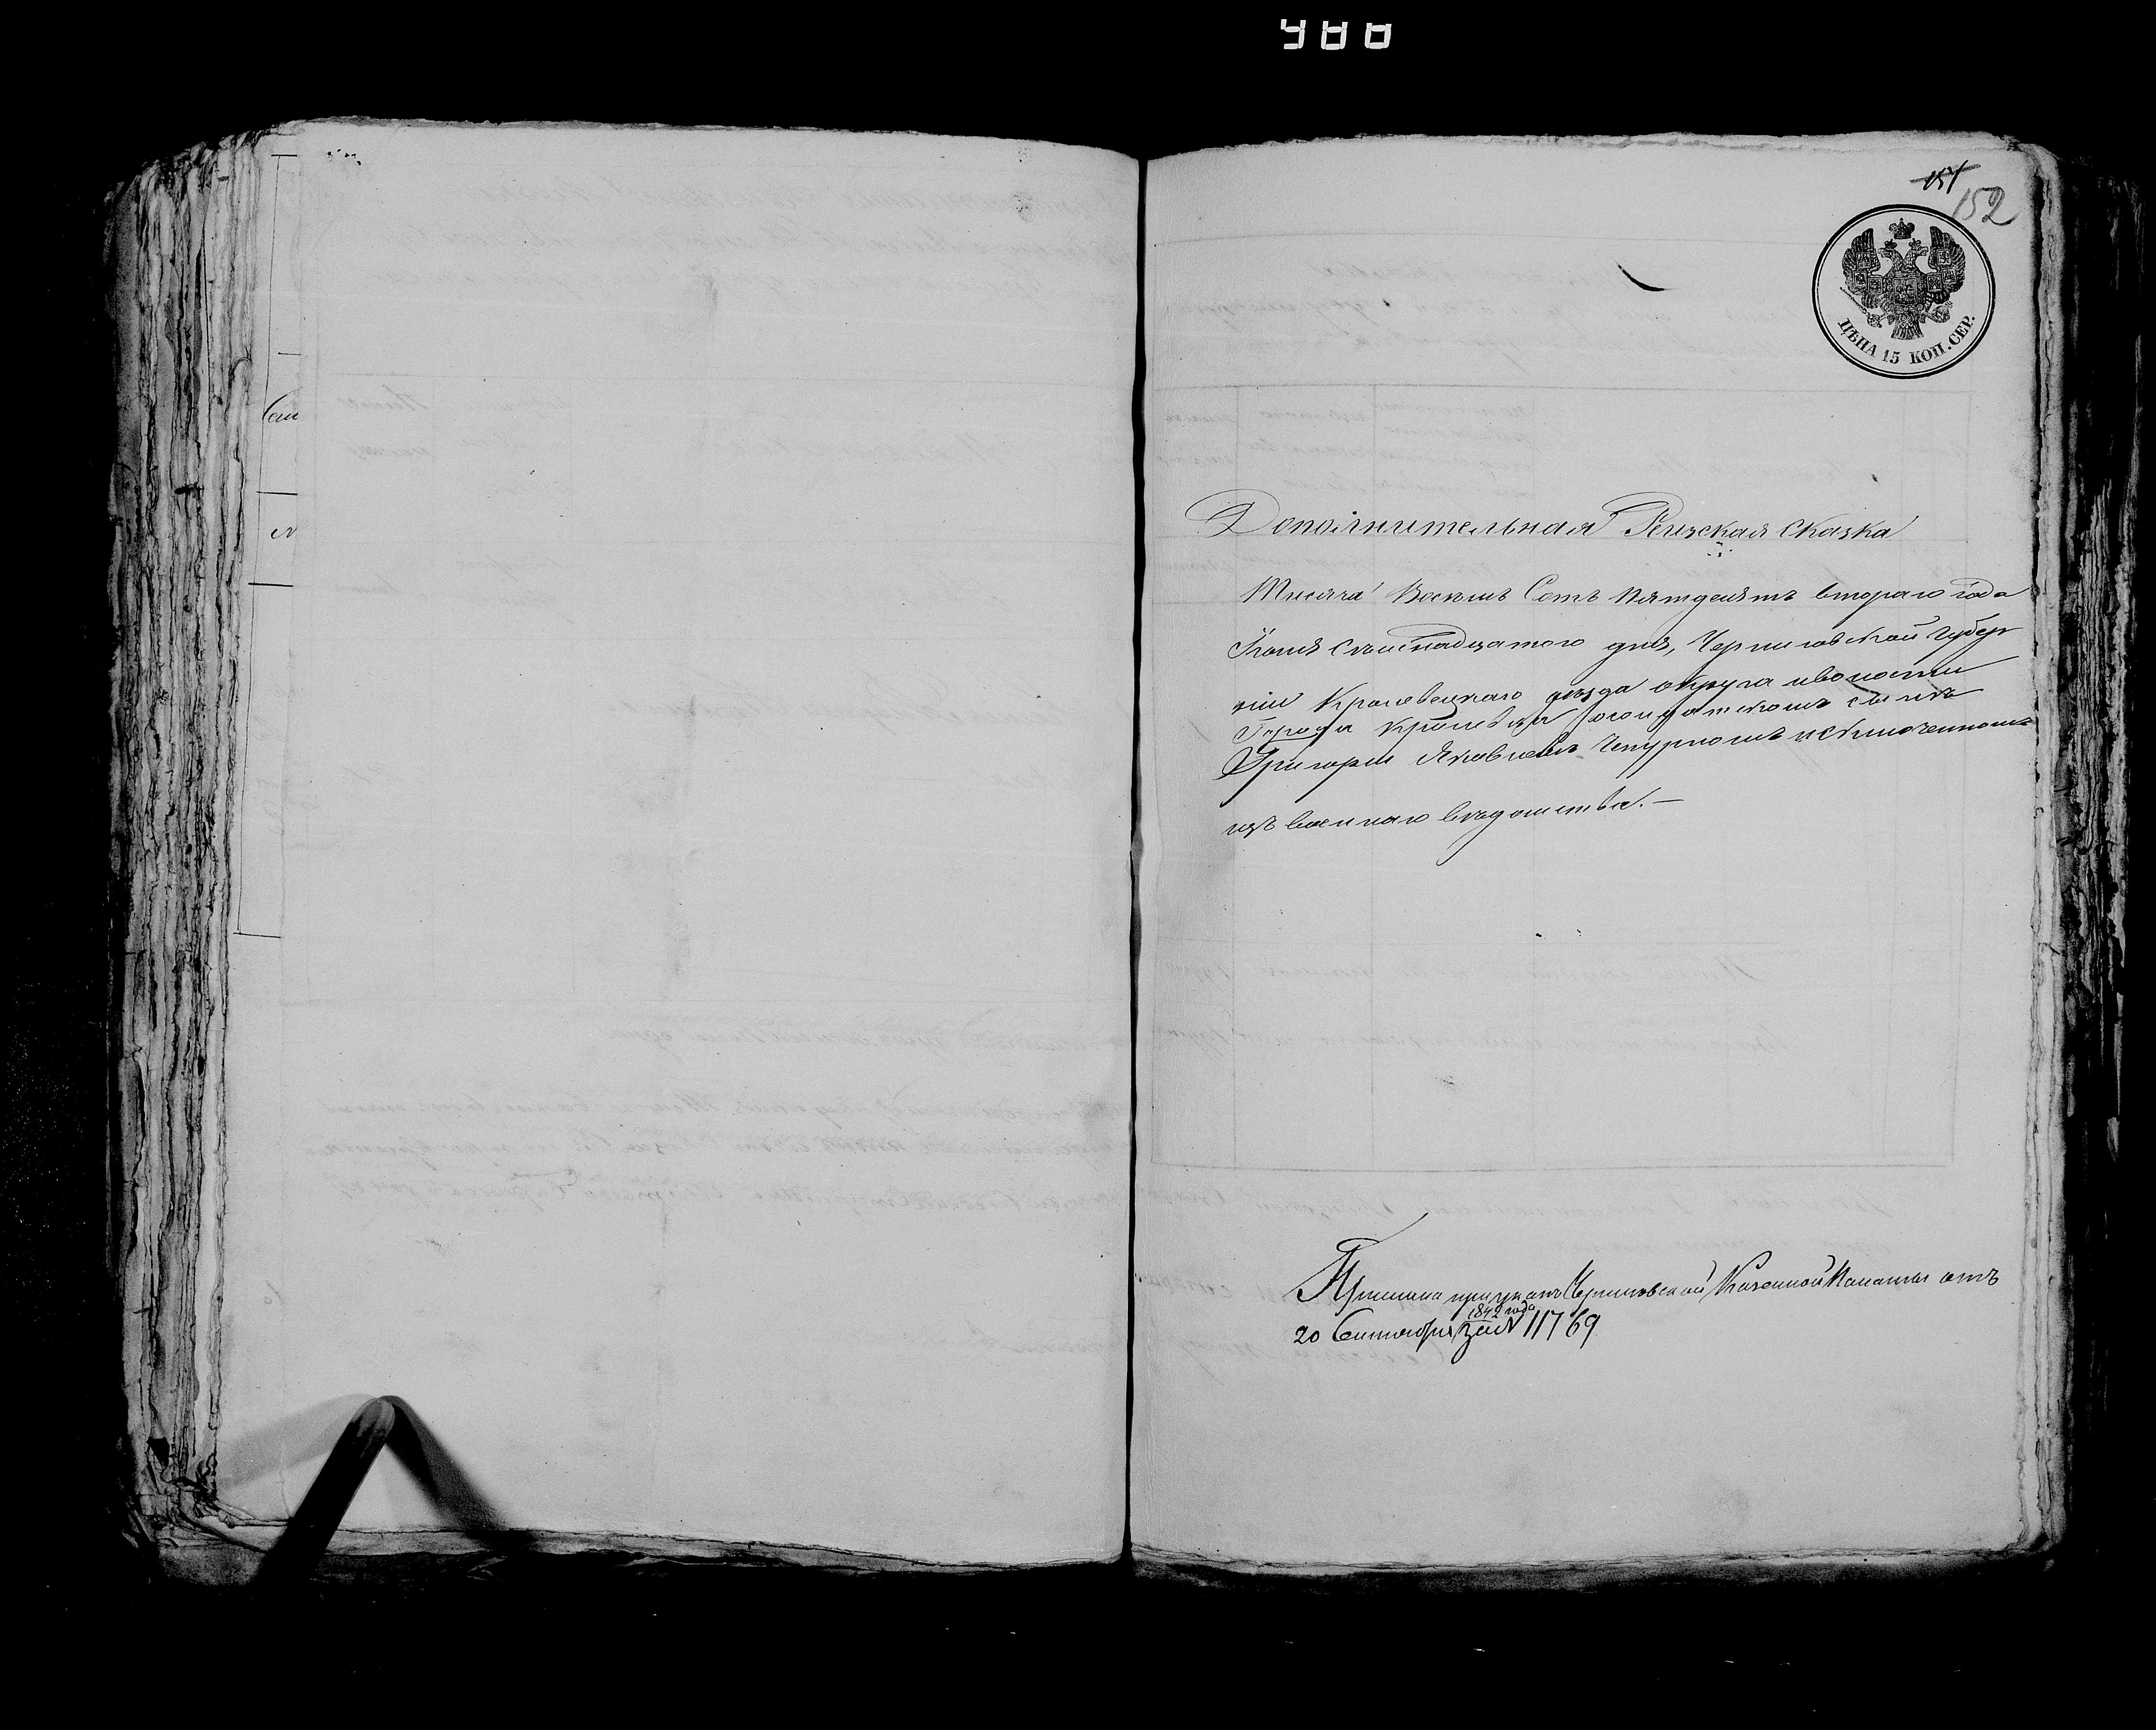 988
151
152
ЦѢНА 15 КОП. СЕР.
Дополнительная Ревизская сказка
Тысяча Восемь Сотъ пятдесятъ втораго года
Іюня семнадцатого дня, Черниговской губер
ніи Кролевецкаго уѣзда округа и волости
Города Кролевца о солдатскомъ сынѣ
Григоріи Яковлевѣ Чепурномъ исключенномъ
изъ военнаго вѣдомства. —
Прислана при указѣ Черниговской Казенной Палаты отъ
20 Сентября 1842 года за № 11769